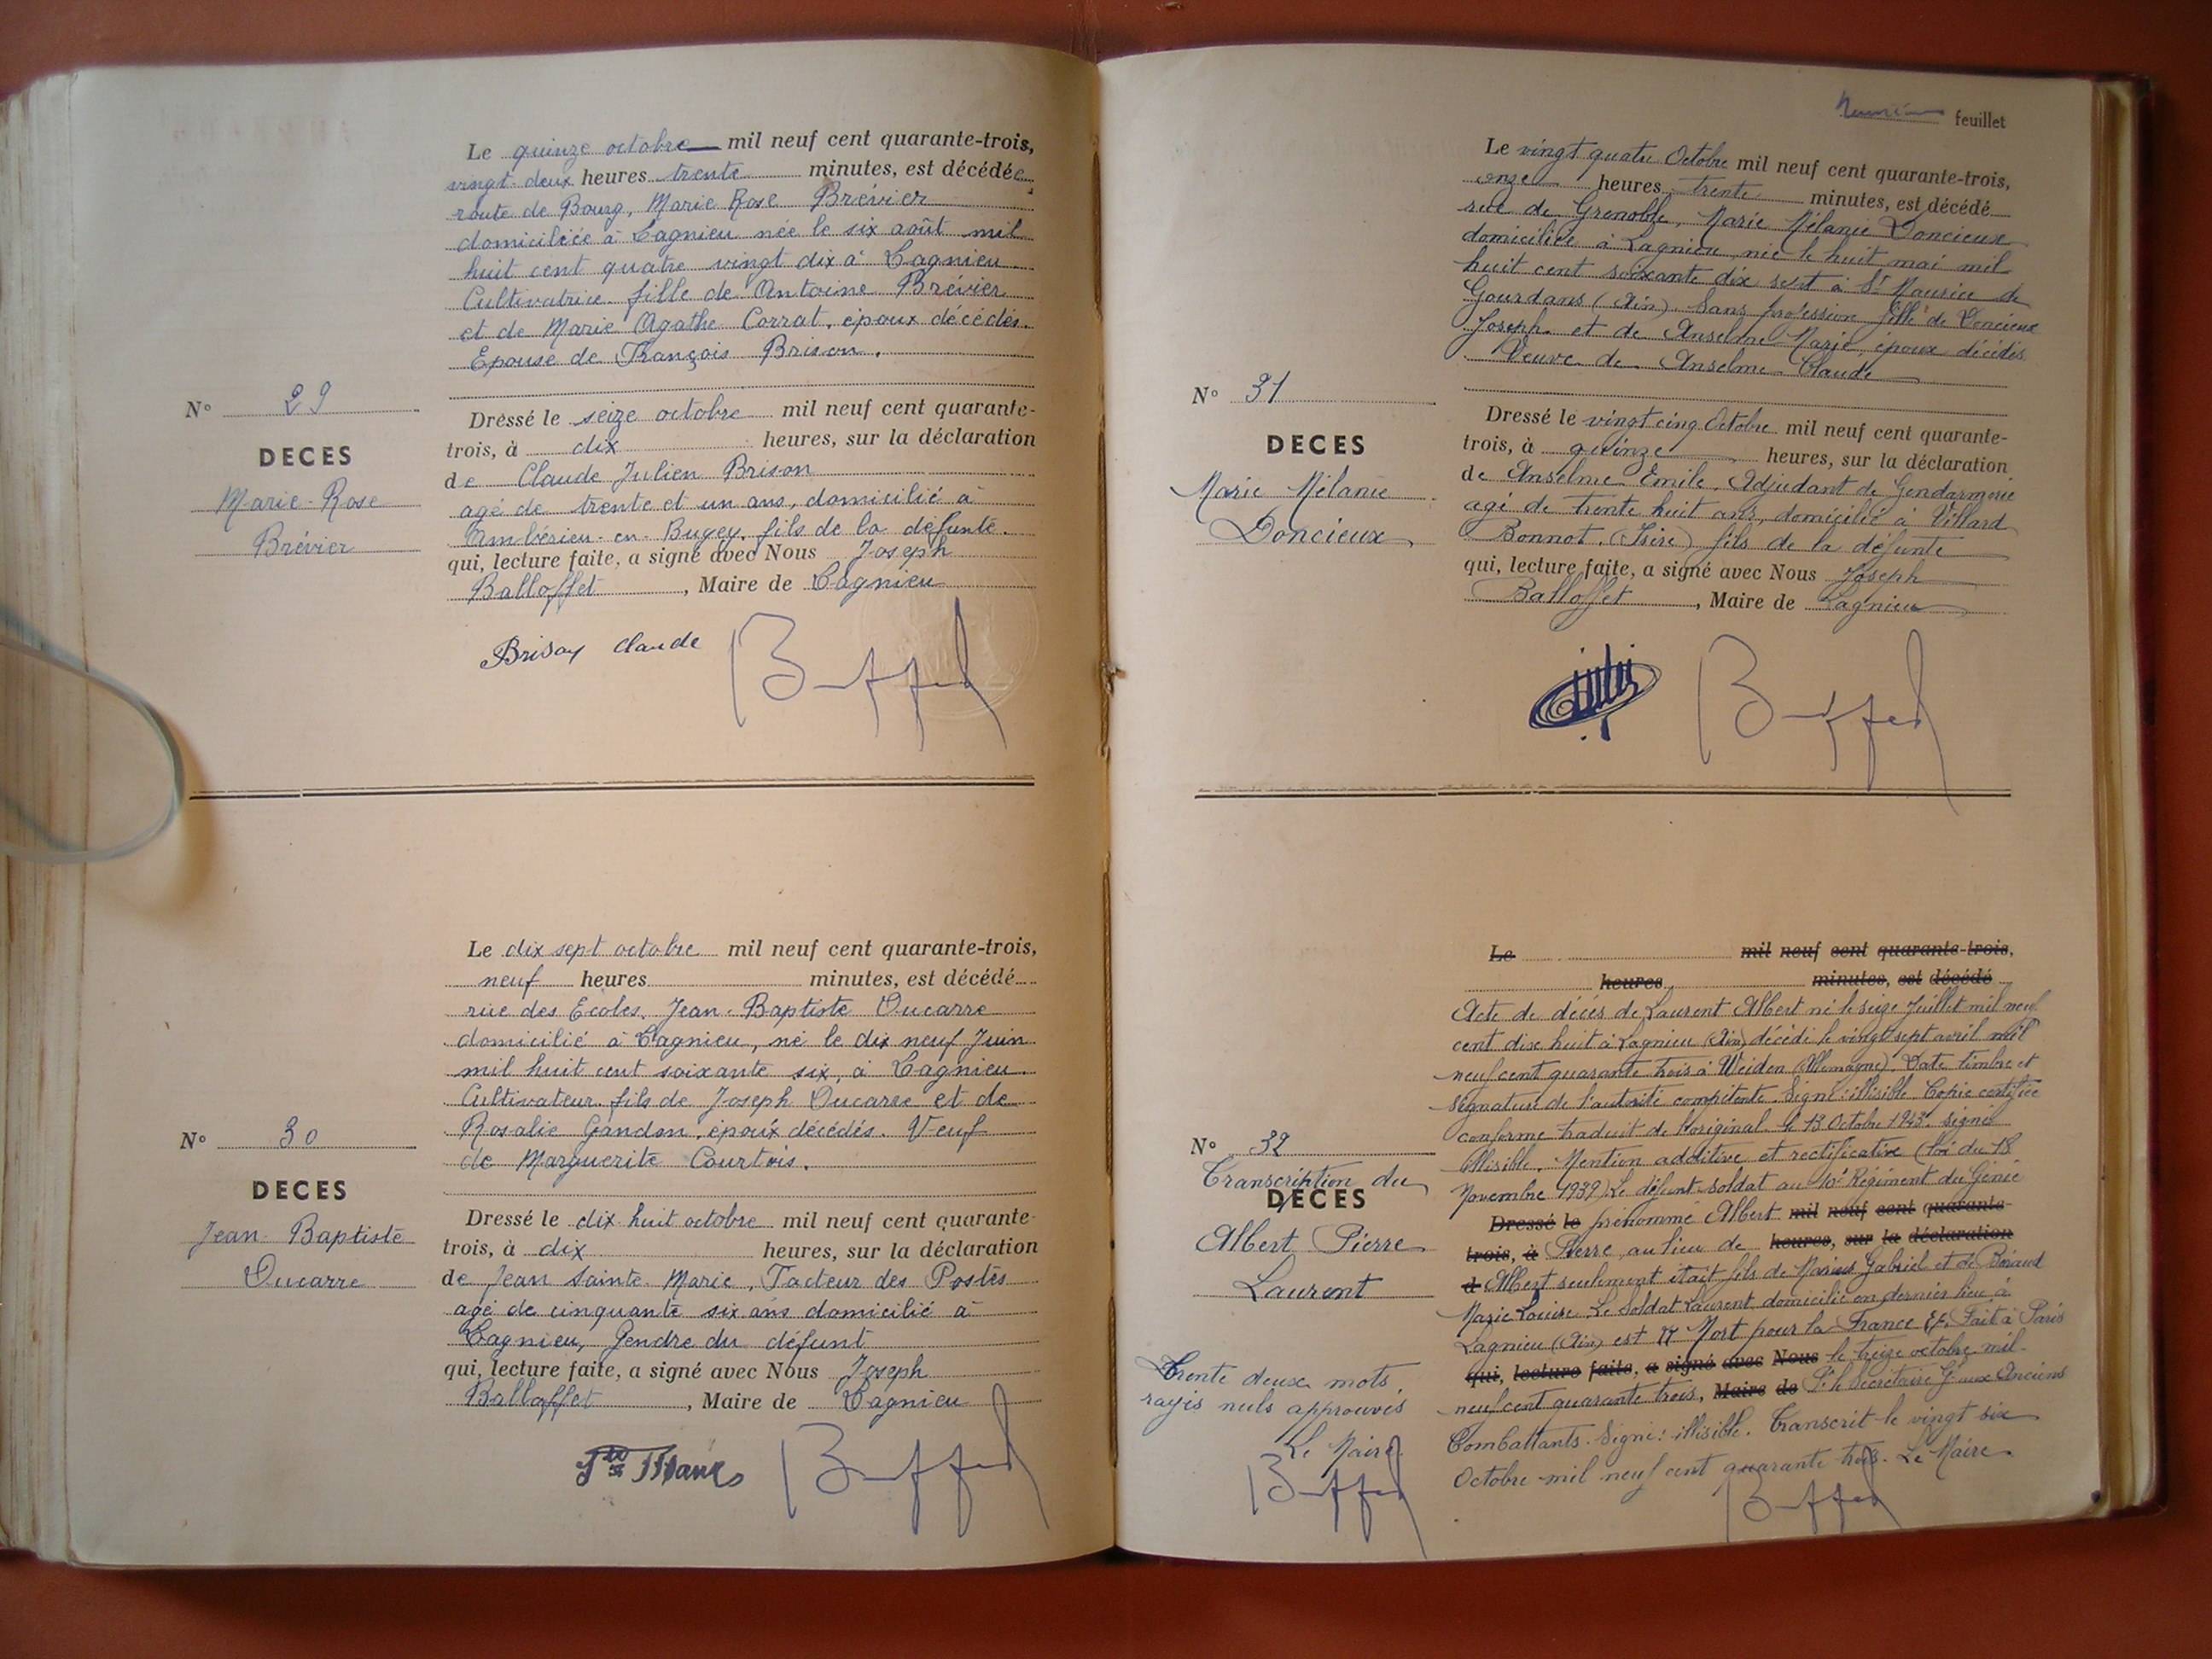 Le quinze octobre mil neuf cent quarante-trois,
vingt-deux heures trente minutes, est décédée
route de Bourg, Marie Rose Brévier
domiciliée à Lagnieu née le six août mil
huit cent quatre vingt dix à Lagnieu
Cultivatrice fille de Antoine Brévier
et de Marie Agathe Corrat, époux décédés.
Epouse de François Brison.
N° 29
DECES
Marie-Rose
Brévier
Dressé le seize octobre mil neuf cent quarante-
trois, à dix heures, sur la déclaration
de Claude Julien Brison
agé de trente et un ans, domicilié à
Ambérieu-en-Bugey, fils de la défunte.
qui, lecture faite, a signé avec Nous Joseph
Balloffet, Maire de Lagnieu
Brison Claude
Le dix sept octobre mil neuf cent quarante-trois,
neuf heures minutes, est décédé
rue des Ecoles, Jean-Baptiste Ducarre
domicilié à Lagnieu, né le dix neuf Juin
mil huit cent soixante six, à Lagnieu.
Cultivateur fils de Joseph Ducarre et de
Rosalie Gandon, époux décédés. Veuf
de Marguerite Courtois.
N° 30
DECES
Jean-Baptiste
Ducarre
Dressé le dix huit octobre mil neuf cent quarante-
trois, à dix heures, sur la déclaration
de Jean Sainte-Marie, Facteur des Postes
agé de cinquante six ans domicilié à
Lagnieu, Gendre du défunt
qui, lecture faite, a signé avec Nous Joseph
Balloffet, Maire de Lagnieu
feuillet
Le vingt quatre Octobre mil neuf cent quarante-trois,
onze heures, trente minutes, est décédé
rue de Grenoble, Marie Mélanie Doncieux
domiciliée à Lagnieu, née le huit mai mil
huit cent soixante dix sept à St Maurice de
Gourdans (Ain). Sans profession fille de Doncieux
Joseph et de Anselme Marie, époux décédés
Veuve de Anselme Claude
N° 31
DECES
Marie Mélanie
Doncieux
Dressé le vingt cinq Octobre mil neuf cent quarante-
trois, à quinze heures, sur la déclaration
de Anselme Emile, Adjudant de Gendarmerie
agé de trente huit ans, domicilié à Villard
Bonnot. (Isère) fils de la défunte
qui, lecture faite, a signé avec Nous Joseph
Balloffet, Maire de Lagnieu
Le mil neuf cent quarante-trois,
heures minutes, est décédé
Acte de décès de Laurent Albert né le seize Juillet mil neuf
cent dix huit à Lagnieu (Ain) décédé le vingt sept avril mil
neuf cent quarante trois à Weiden (Allemagne). Date timbre et
signature de l'autorité compétente. Signé: illisible. Copie certifiée
conforme traduit de l'original le 13 Octobre 1943. signé
illisible. Mention additive et rectificative (loi du 18
Novembre 1939) Le défunt soldat au 10e Régiment du Génie
Dressé le prénommé Albert mil neuf cent quarante-
trois, à Pierre, au lieu de heures, sur la déclaration
d Albert seulement était fils de Marius Gabriel et de Béraud
Marie Louise. Le Soldat Laurent domicilié en dernier lieu à
Lagnieu (Ain) est " Mort pour la France ". Fait à Paris
qui, lecture faite, a signé avec Nous le treize octobre mil
neuf cent quarante trois, Maire de Pr le Secrétaire Gal aux Anciens
Combattants. Signé: illisible. Transcrit le vingt six
Octobre mil neuf cent quarante trois. Le Maire
N° 32
Transcription du
DECES
Albert Pierre
Laurent
Trente deux mots
rayés nuls approuvés
Le Maire